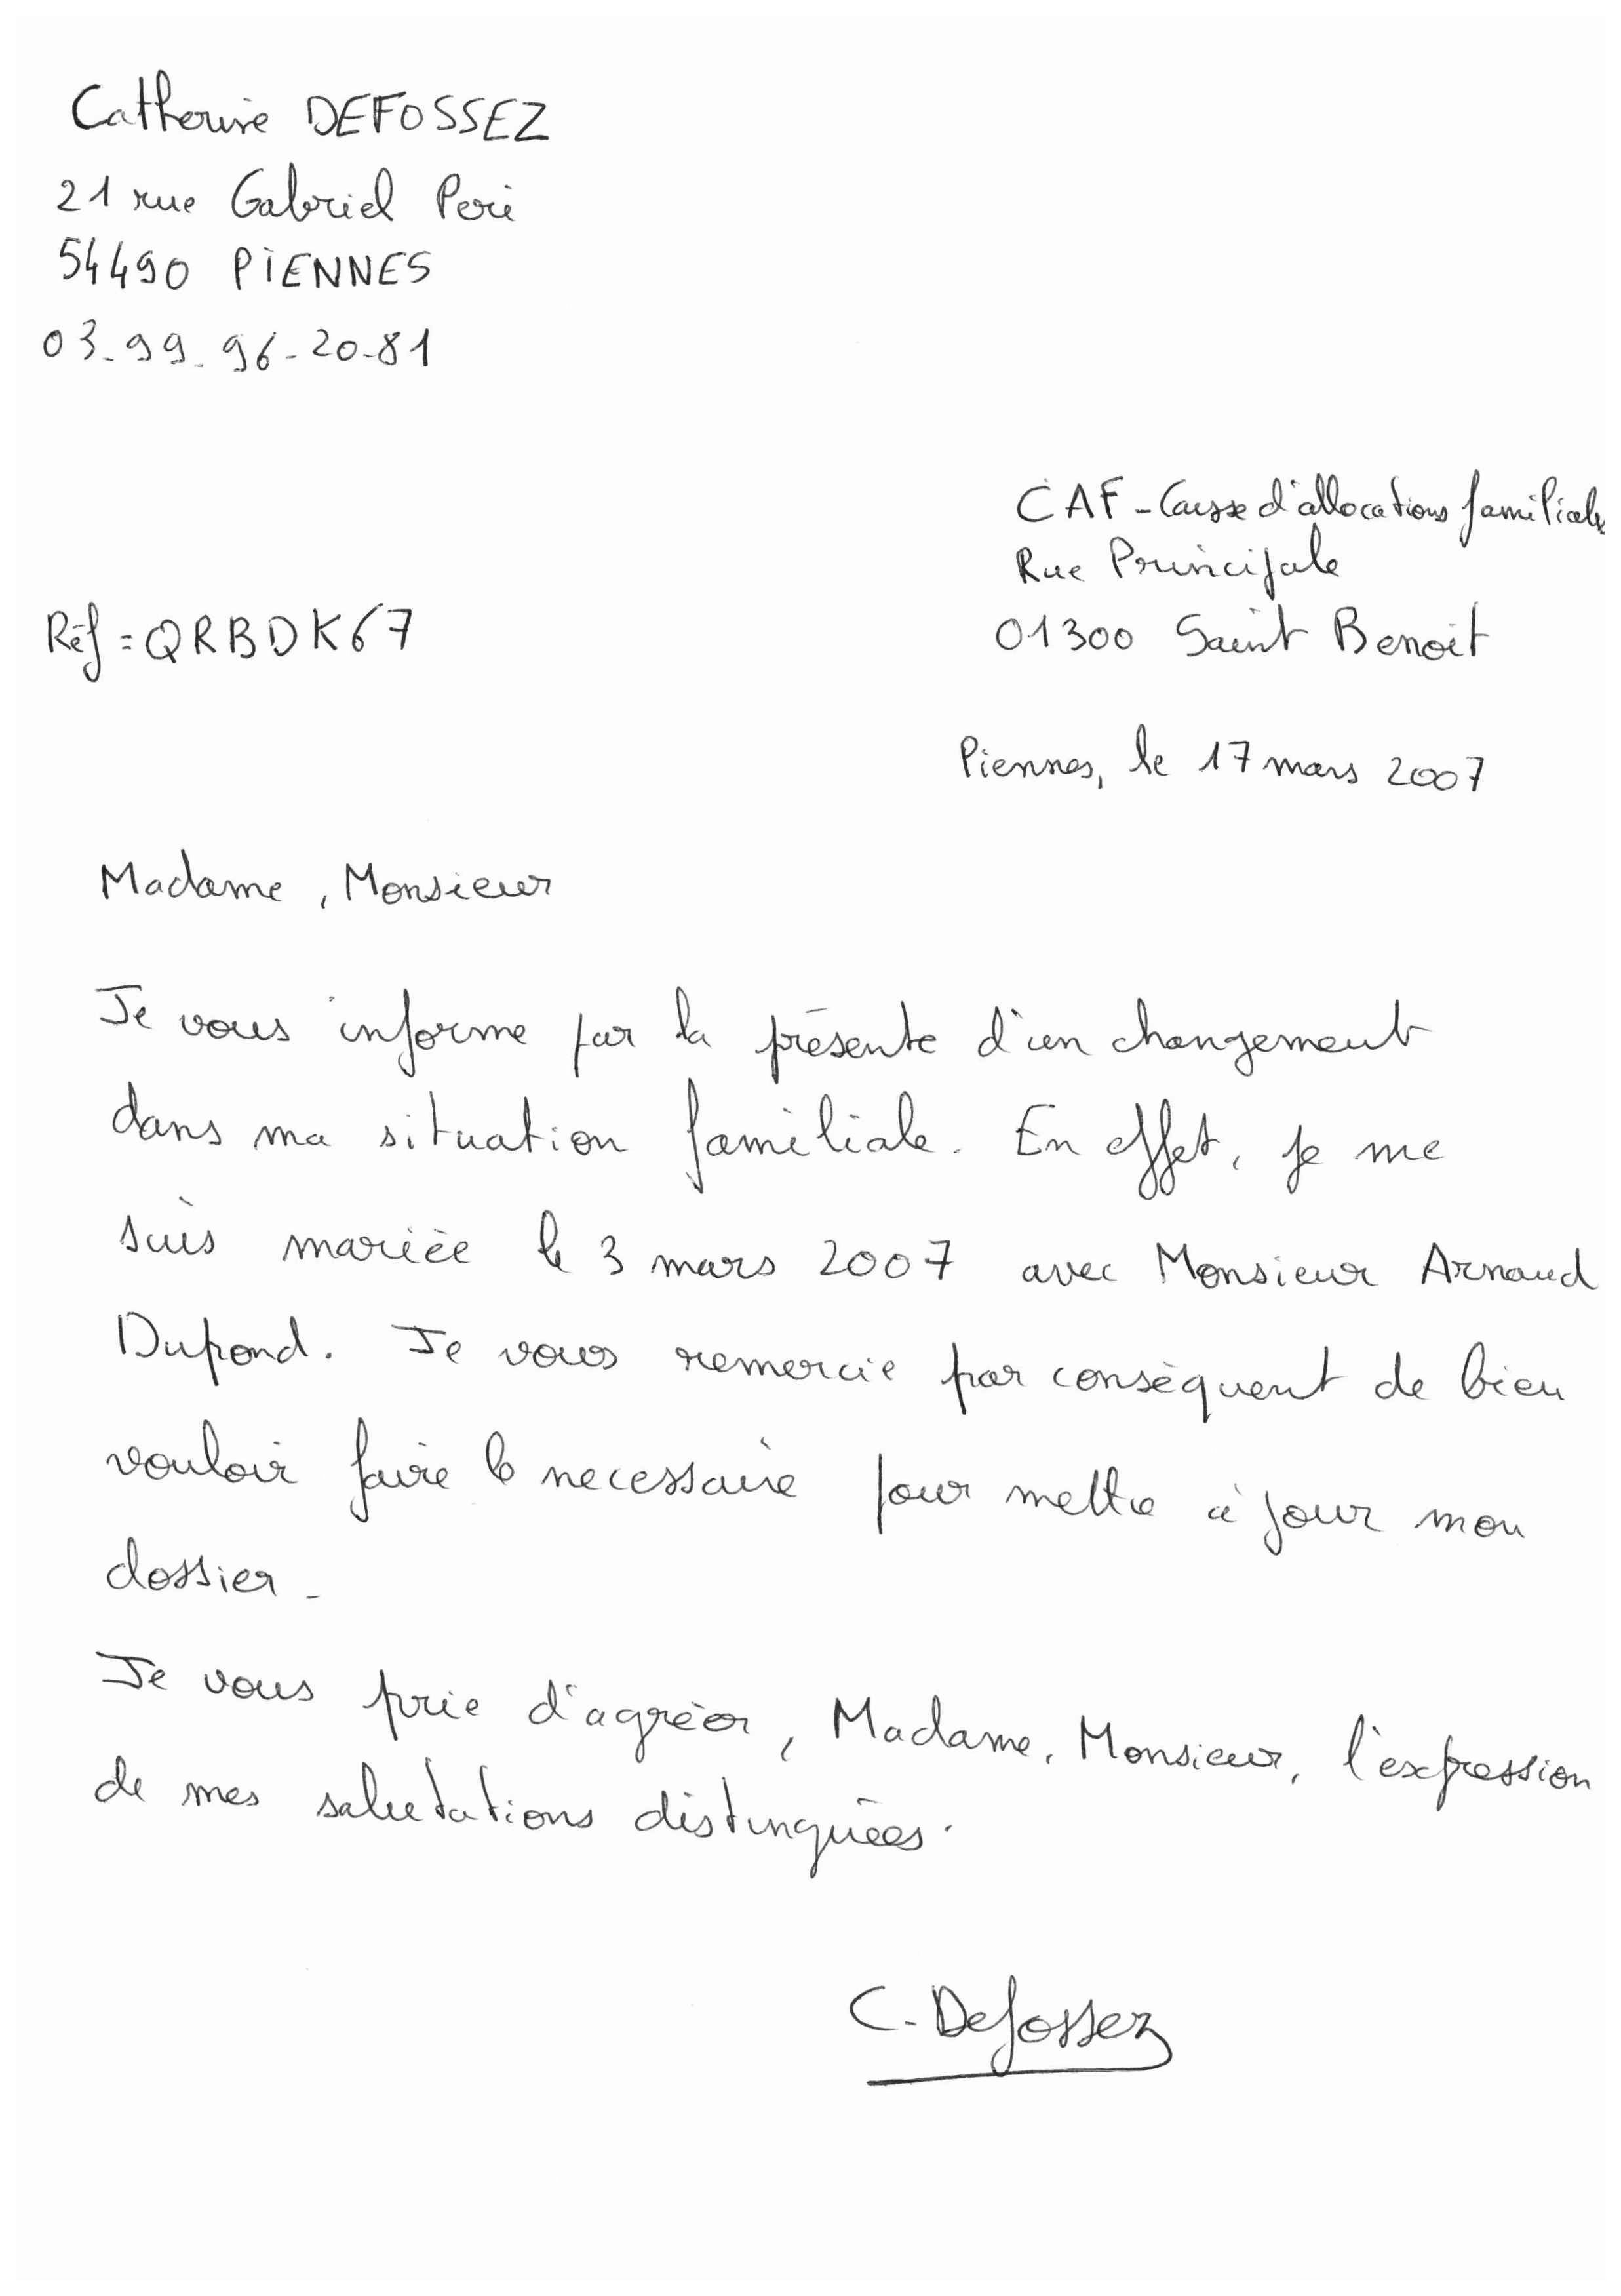 Catherine DEFOSSEZ
21 rue Gabriel Peri
54490 PIENNES
03-99-96-20-81
CAF-Caisse d'allocations familiales
Rue Principale
Réf=QRBDK67
01300 Saint Benoit
Piennes, le 17 mars 2007
Madame, Monsieur
Je vous informe par la présente d'un changement
dans ma situation familiale. En effet, je me
suis mariée le 3 mars 2007 avec Monsieur Arnaud
Dupond. Je vous remercie par conséquent de bien
vouloir faire le necessaire pour mettre à jour mon
dossier.
Je vous prie d'agréer, Madame, Monsieur, l'expression
de mes salutations distinguées.
C. Defossez